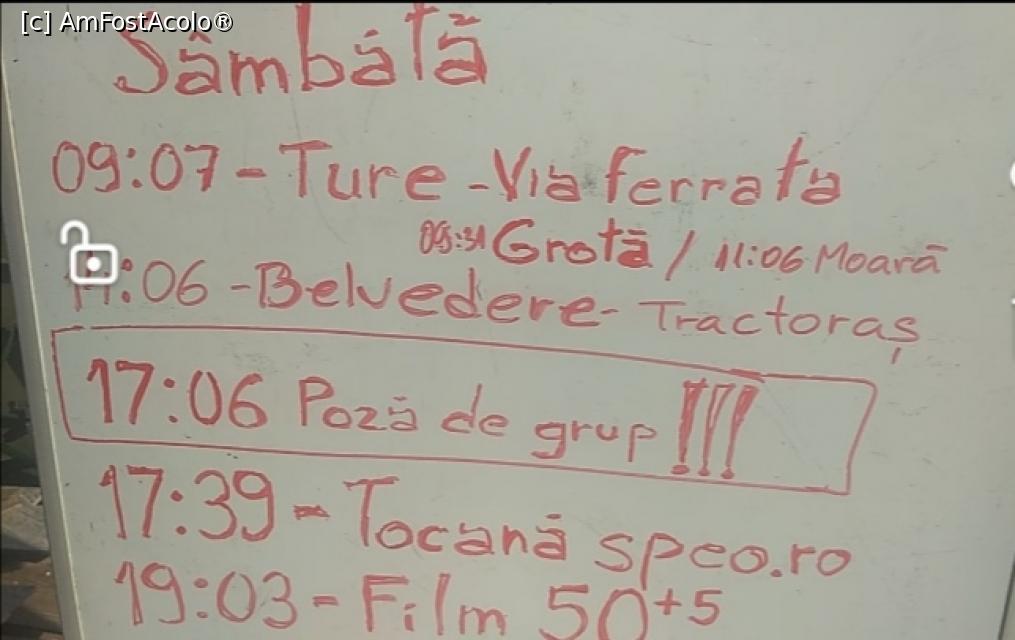 [c] AmFostAcolo®
Sâmbătă
09:07 - Ture - Via ferrata
09:31 Grotă / 11:06 Moară
11:06 - Belvedere - Tractoraș
17:06 Poză de grup !!!
17:39 - Tocană speo.ro
19:03 - Film 50+5